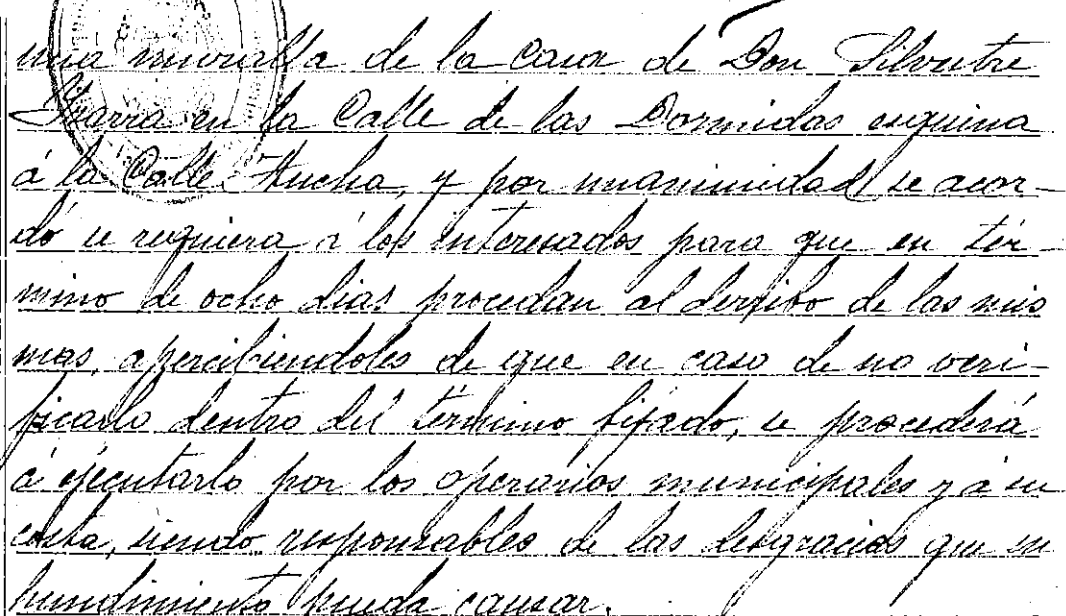 una muralla de la casa de Don Silvestre
Ibarra en la Calle de las Dormidas esquina
á la Calle Hucha, y por unanimidad se acor-
dó se requiera á los interesados para que en tér-
mino de ocho dias procedan al derribo de las mis
mas, apercibiendoles de que en caso de no veri-
ficarlo dentro del término fijado, se procederá
á ejecutarlo por los operarios municipales y á su
costa, siendo responsables de las desgracias que su
hundimiento pueda causar.